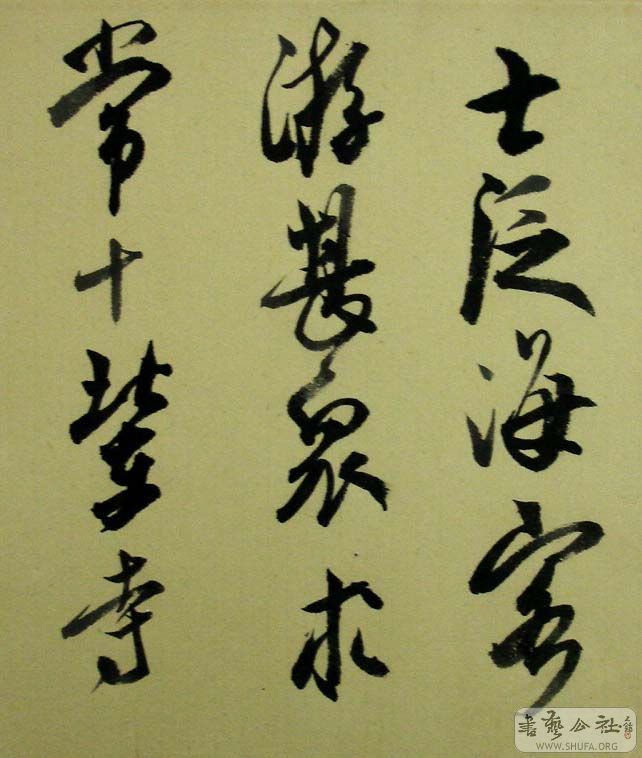 士泛海客
游甚衆求
常十輩寺
書藝公社
WWW.SHUFA.ORG